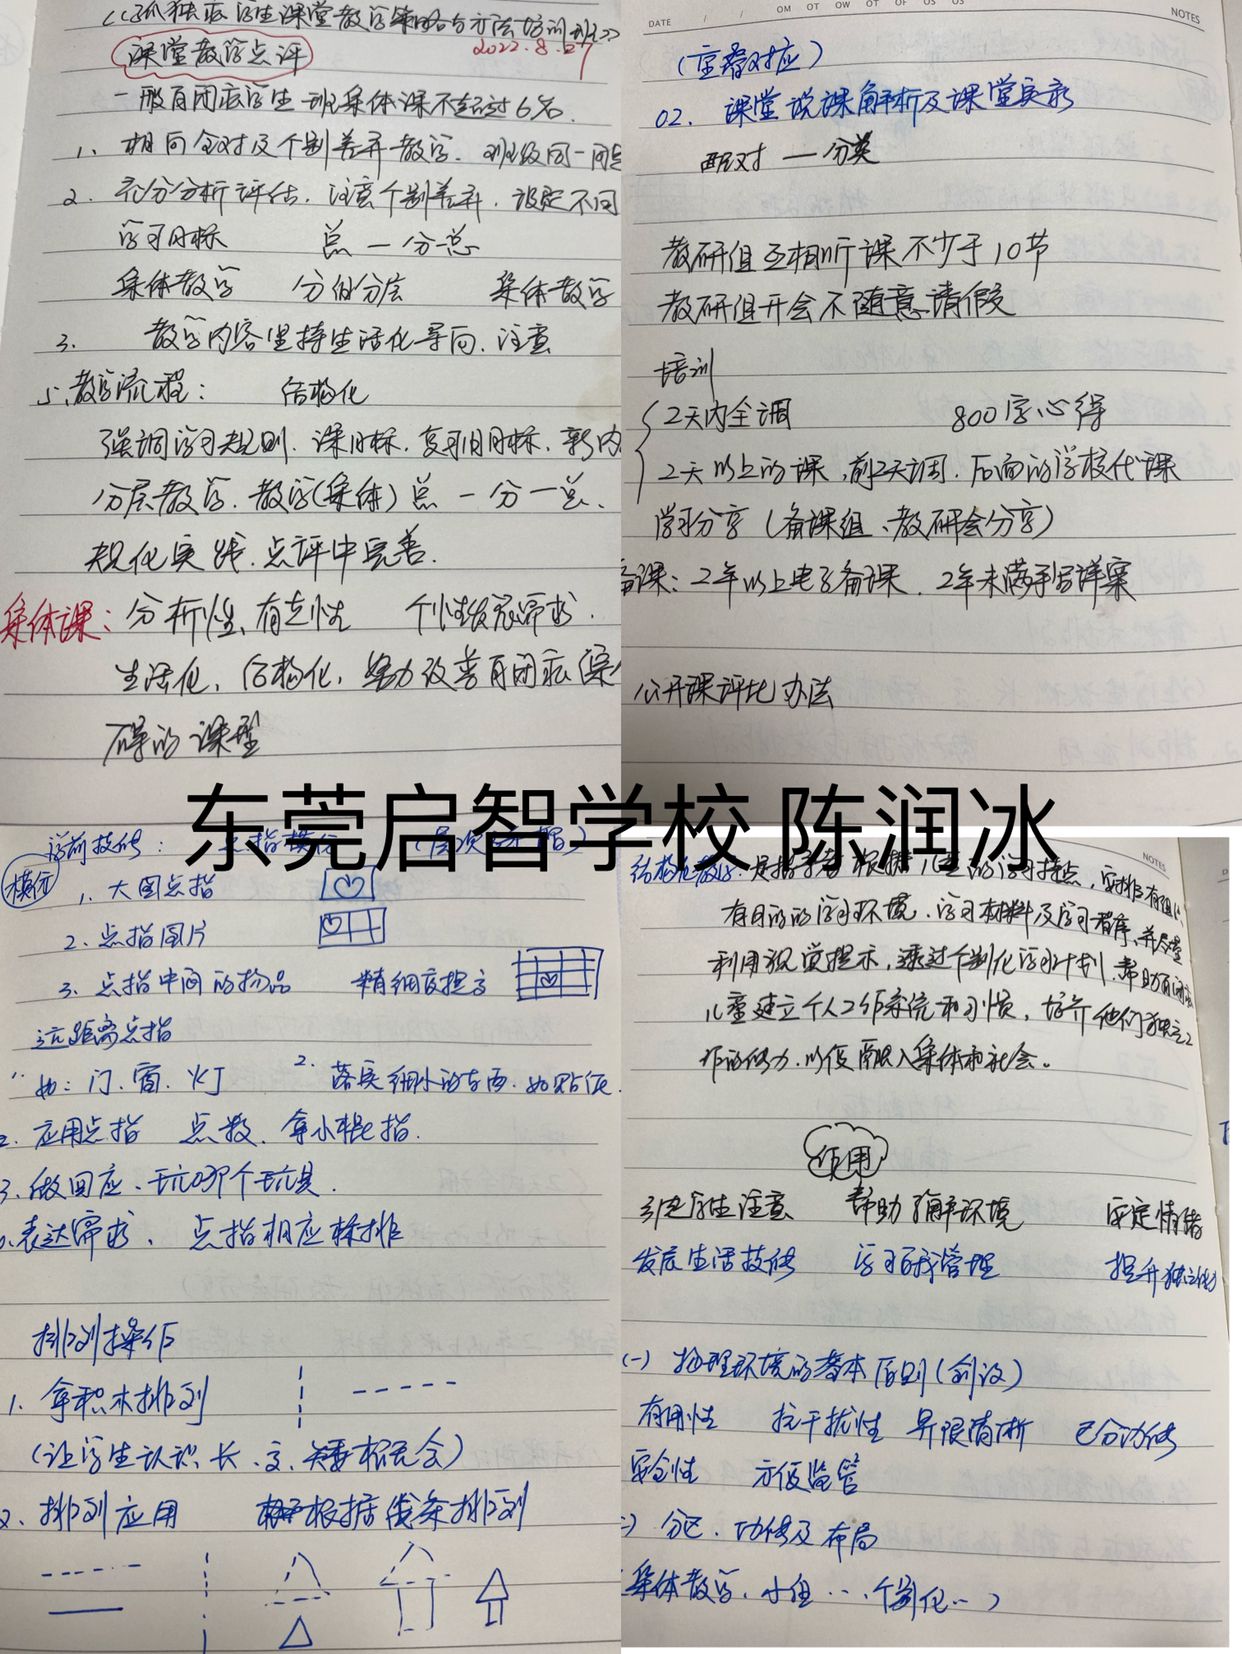 《孤独症学生课堂教学策略与方法培训班》
2022.8.27
课堂教学点评
一般自闭症学生班集体课不超过6名.
1、相同针对及个别差异教学. 班级同一
2. 充分分析评估. 注意个别差异. 设定不同
学习目标 总一分一总
集体教学 分组分层 集体教学
3. 教学内容坚持生活化导向. 注意
5.教学流程: 结构化
强调学习规则. 课目标. 复习旧目标. 新内
分层教学. 教学(集体) 总一分一总.
规化实践. 点评中完善.
集体课: 分析性、有走性 个性发展需求.
生活化. 结构化. 努力改善自闭症
碍的课型
DATE / / OM OT OW OT OF OS OS NOTES
02. 课堂说课解析及课堂实录
配对 — 分类
教研组互相听课不少于10节
教研组开会不随意请假
培训
2天内全调 800字心得
2天以上的课,前2天调. 后面的学校代课
学习分享(备课组、教研会分享)
备课: 2年以上电子备课. 2年未满手写详案
公开课评比办法
东莞启智学校 陈润冰
学前技能:
1、大图点指
2、点指图片
3. 点指中间的物品 精细度提高
远距离点指
1. 如: 门. 窗. 灯 2. 落实细小的东西. 如贴纸.
2. 应用点指 点数. 拿小棍指.
3. 做回应、玩哪个玩具.
表达需求. 点指相应
排列操作
1. 拿积木排列
(让学生认识长、高、矮概念)
2. 排列应用 根据线条排列
NOTES
结构化教学: 是指 根据儿童的学习特点, 安排有组织
有目的的学习环境. 学习材料及学习程序, 并尽量
利用视觉提示, 透过个别化学习计划. 帮助自闭症
儿童建立个人工作系统和习惯, 培养他们独立工
作的能力. 以便融入集体和社会。
作用
引起学生注意 帮助了解环境 安定情绪
发展生活技能 学习自我管理 提升独立能力
(一) 物理环境的基本原则(创设)
有用性 抗干扰性 界限清晰 区分功能
安全性 方便监管
二) 分区. 功能及布局
集体教学. 小组…. 个别化…)